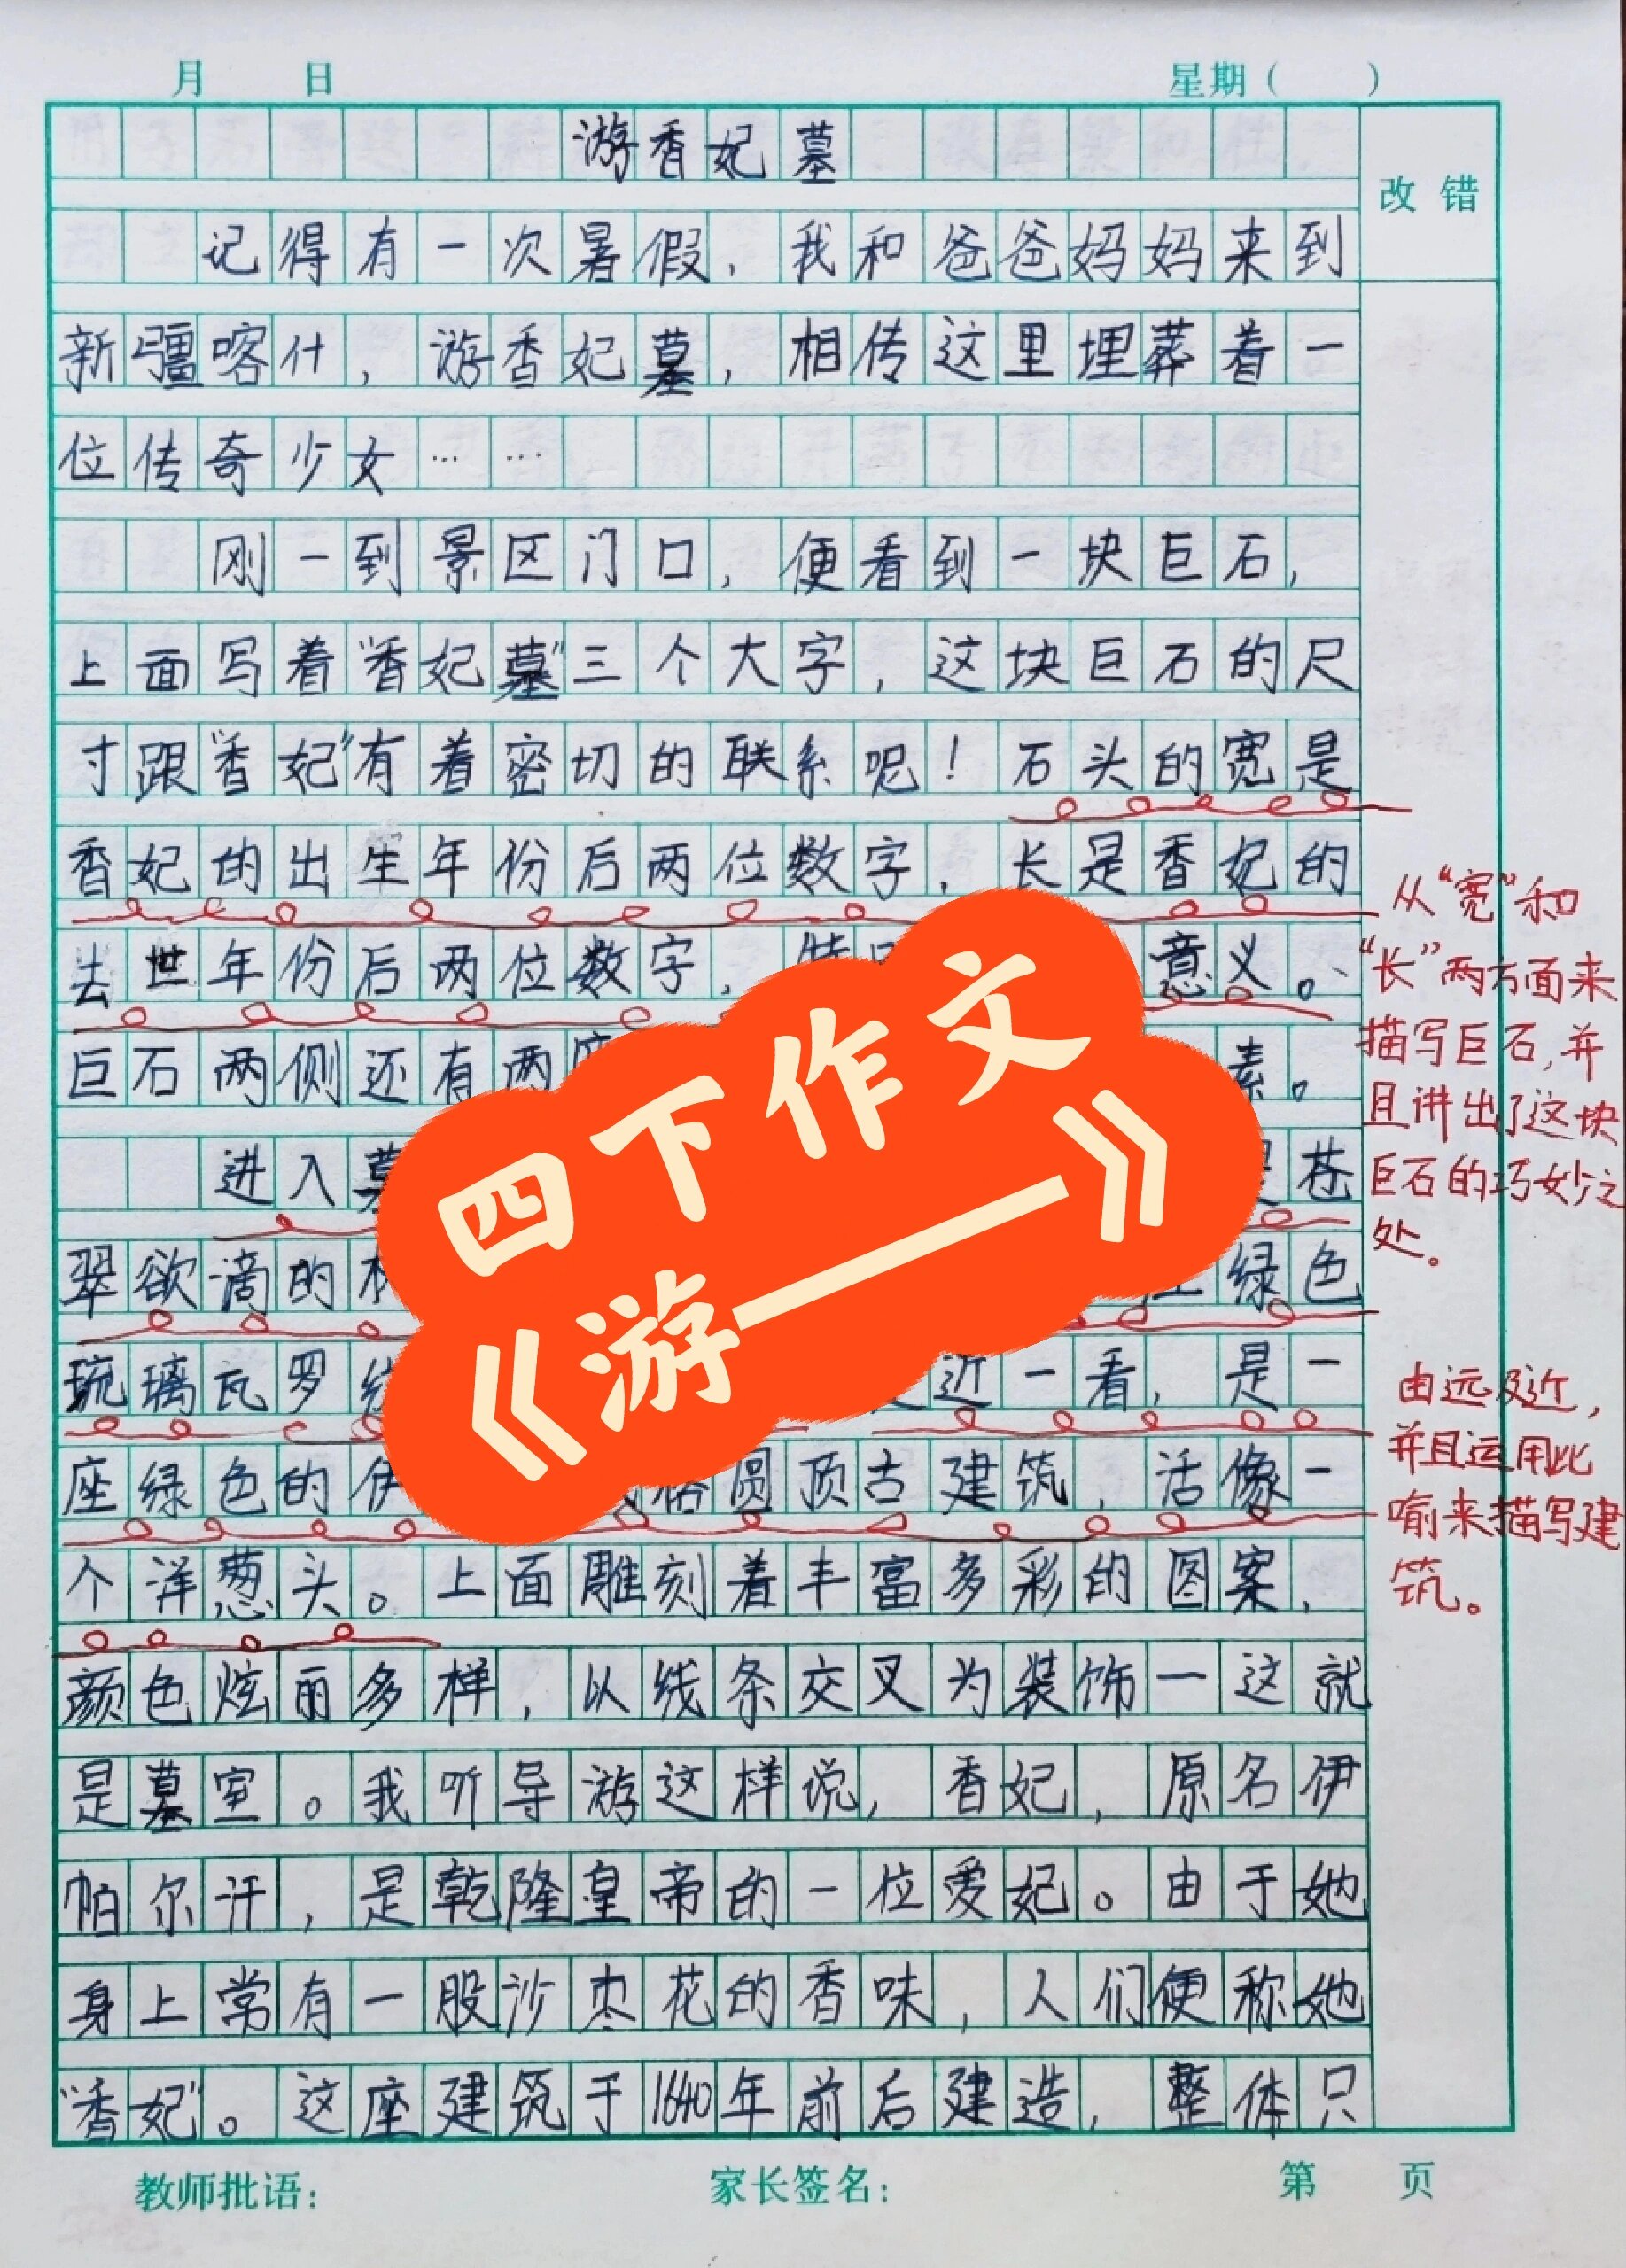 月 日 星期( )
游香妃墓
改错
记得有一次暑假,我和爸爸妈妈来到
新疆喀什,游香妃墓,相传这里埋葬着一
位传奇少女……
刚一到景区门口,便看到一块巨石,
上面写着“香妃墓”三个大字,这块巨石的尺
寸跟“香妃”有着密切的联系呢!石头的宽是
香妃的出生年份后两位数字,长是香妃的
去世年份后两位数字, 意义。
巨石两侧还有两 素。
进入墓 苍
翠欲滴的 绿色
琉璃瓦罗 近一看,是一
座绿色的伊 圆顶古建筑,活像一
个洋葱头。上面雕刻着丰富多彩的图案,
颜色炫丽多样,以线条交叉为装饰一这就
是墓室。我听导游这样说,香妃,原名伊
帕尔汗,是乾隆皇帝的一位爱妃。由于她
身上常有一股沙枣花的香味,人们便称她
“香妃”。这座建筑于1640年前后建造,整体只
从“宽”和
“长”两方面来
描写巨石,并
且讲出了这块
巨石的巧妙之
处。
由远及近,
并且运用比
喻来描写建
筑。
四下作文
《游——》
教师批语: 家长签名: 第 页